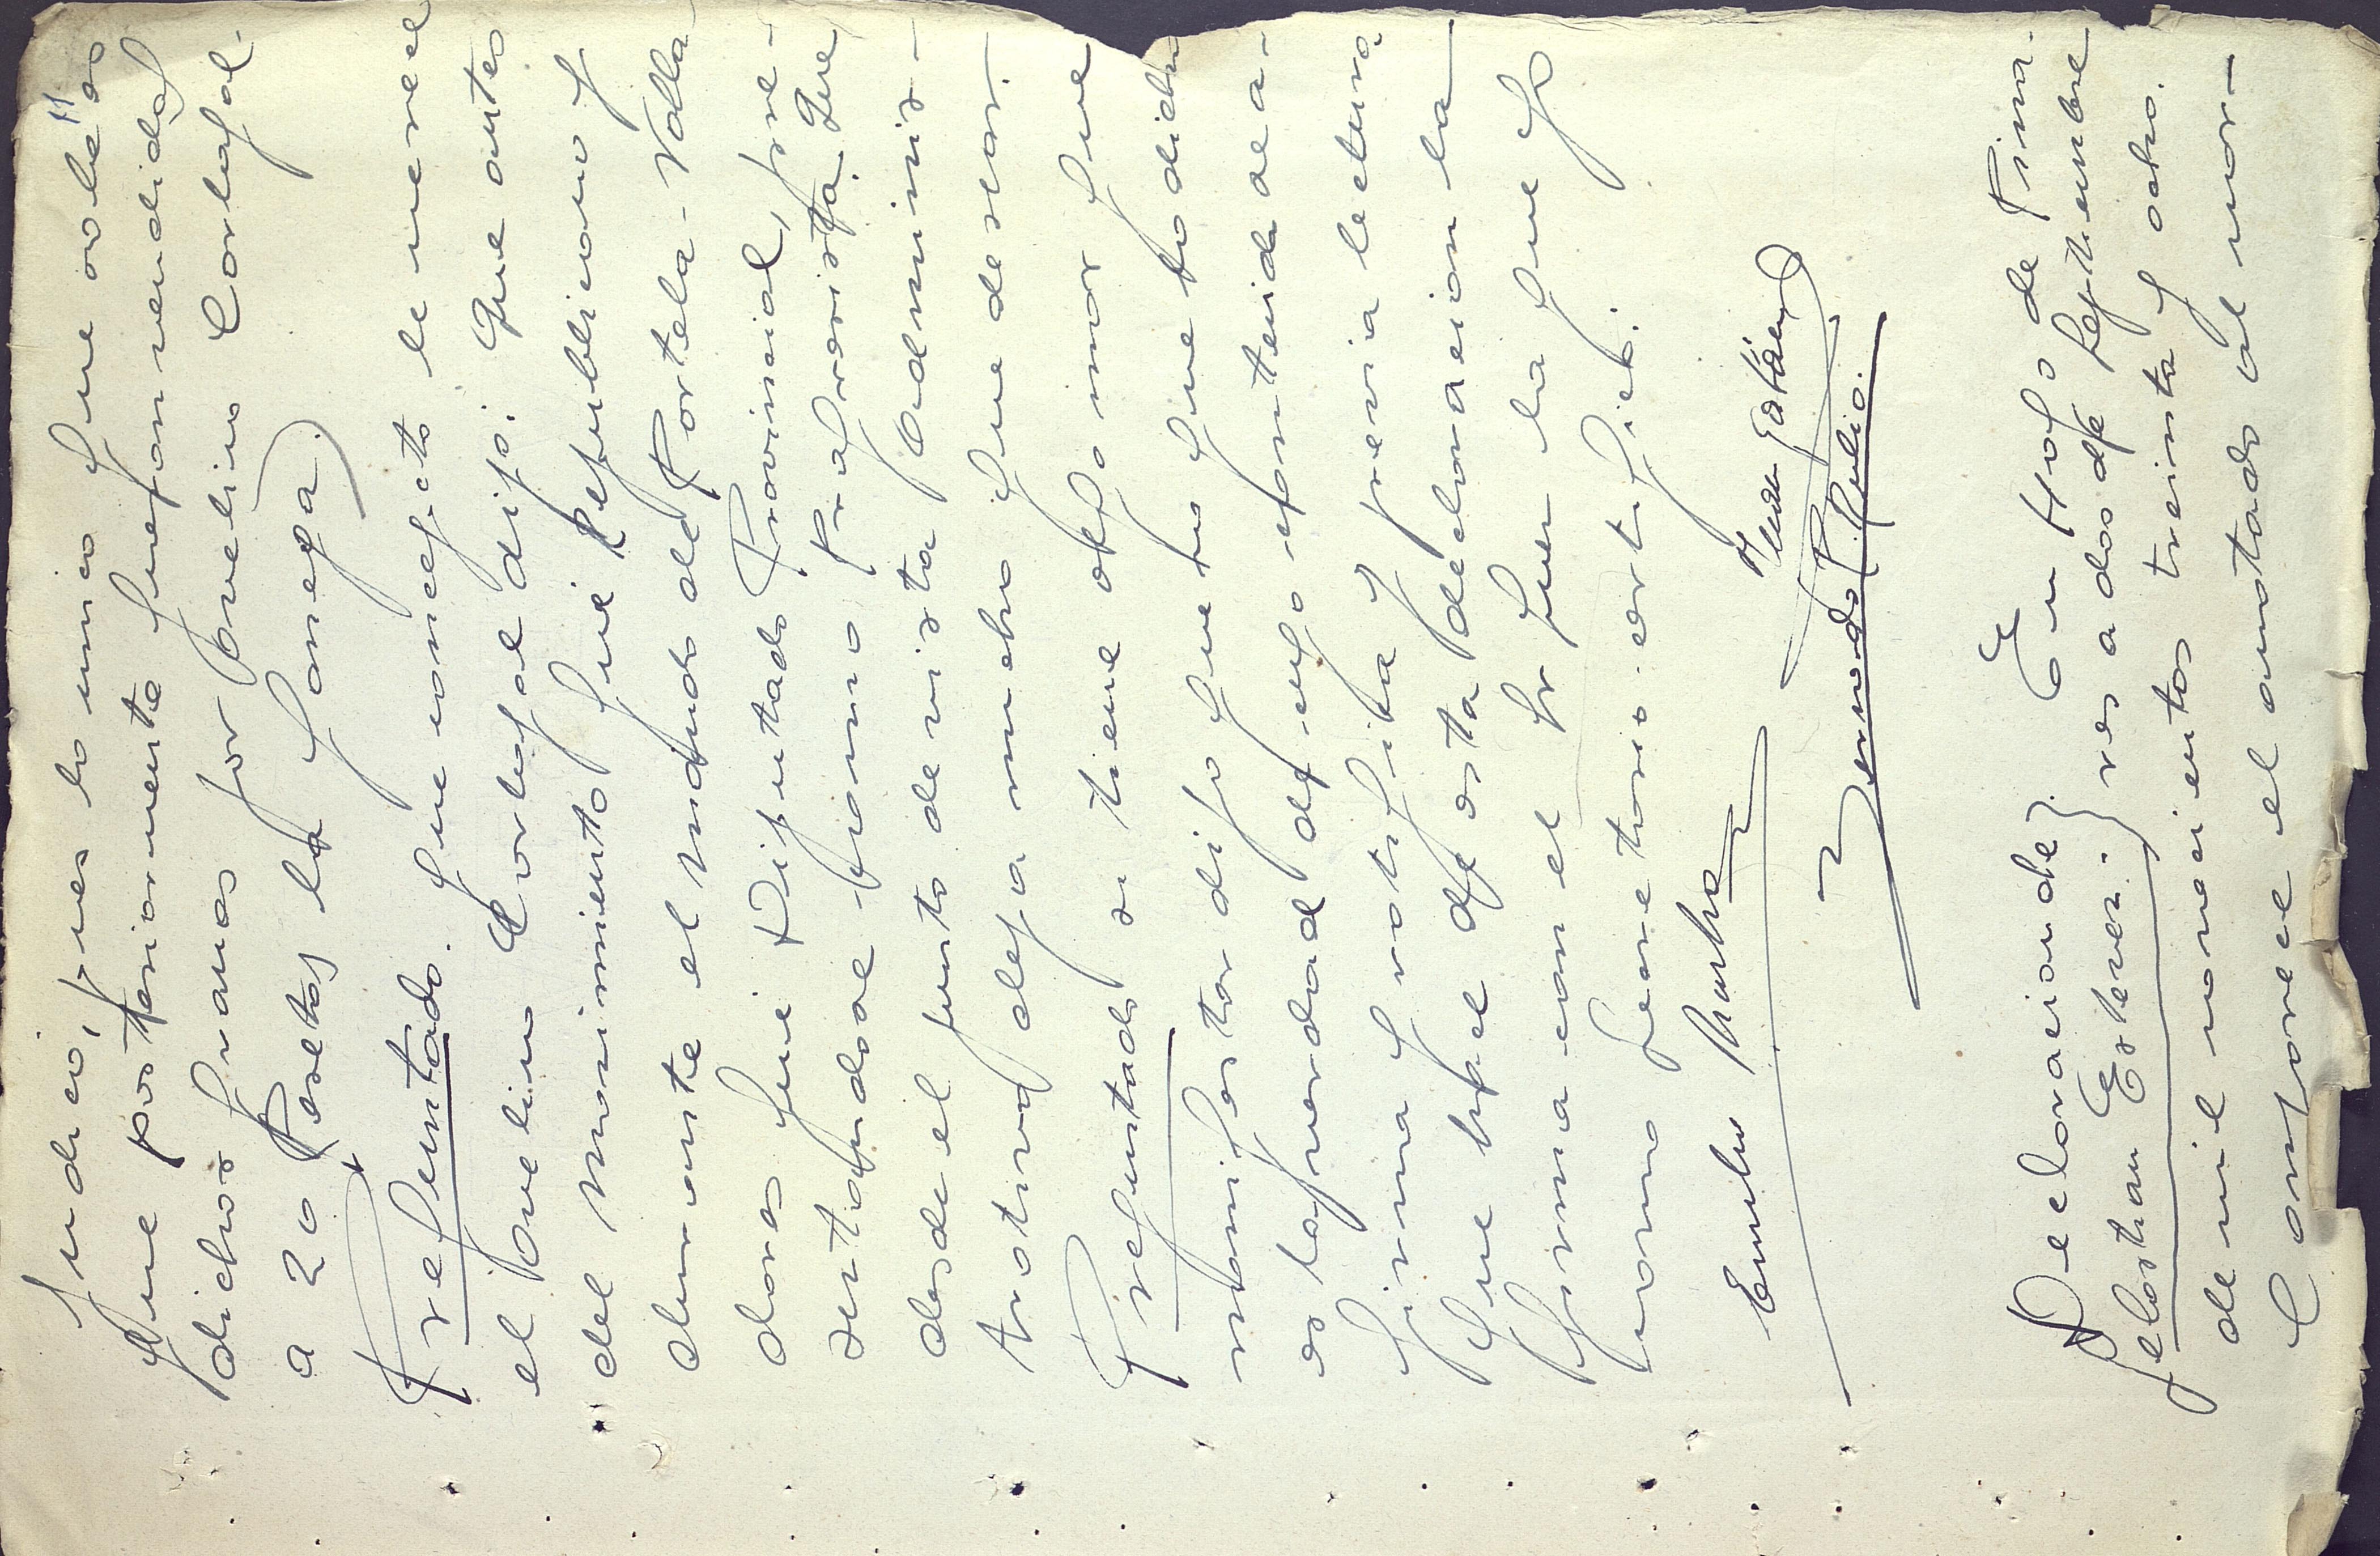 judicó, pues lo unico que sabe es
que posteriormente fueron vendidas
dichas fincas por Avelino Carbajal
a 20 Pesetas la fanega.
Preguntado. que concepto le merece
el Avelino Carbajal dijo: Que antes
del Movimiento fué Republicano y
durante el mando de Portela-Valla-
dares fué Diputado Provincial, pre-
sentandose como Progresista. Que
desde el punto de vista Adminis-
trativo deja mucho que desear.
Preguntado si tiene algo mas que
manifestar dijo que no que lo dicho
es la verdad de cuyo contenido se a-
firma y ratifica y previa lectura
que hace de esta declaracion la
firma con el Sr Juez la que yo
como Secretario certifico:
Emilio Muñoz Juan
Bernardo Rubio.
Declaracion de } En Hoyo de Pina-
Sebastian Estevez. } res a dos de Septiembre
de mil novecientos treinta y ocho.
Comparece el anotado al mar-